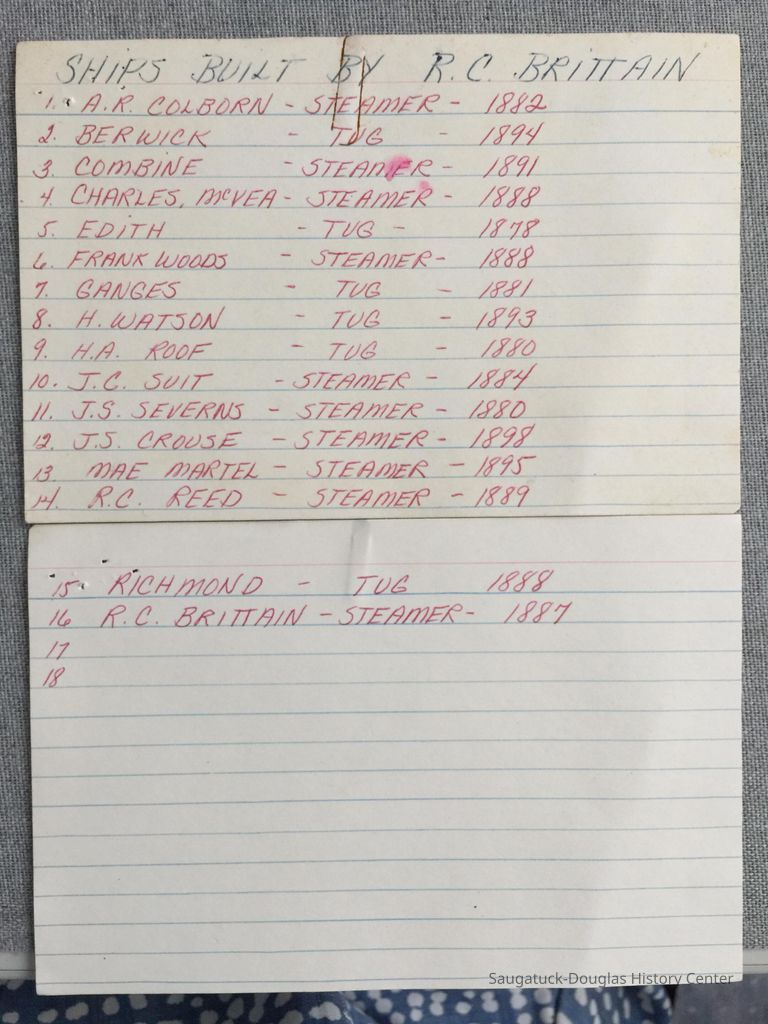 SHIPS BUILT BY R.C. BRITTAIN
1. A.R. COLBORN - STEAMER - 1882
2. BERWICK - TUG - 1894
3. COMBINE - STEAMER - 1891
4. CHARLES, McVEA - STEAMER - 1888
5. EDITH - TUG - 1878
6. FRANK WOODS - STEAMER - 1888
7. GANGES - TUG - 1881
8. H. WATSON - TUG - 1893
9. H.A. ROOF - TUG - 1880
10. J.C. SUIT - STEAMER - 1884
11. J.S. SEVERNS - STEAMER - 1880
12. J.S. CROUSE - STEAMER - 1898
13. MAE MARTEL - STEAMER - 1895
14. R.C. REED - STEAMER - 1889
15. RICHMOND - TUG 1888
16 R.C. BRITTAIN - STEAMER - 1887
17
18
Saugatuck-Douglas History Center